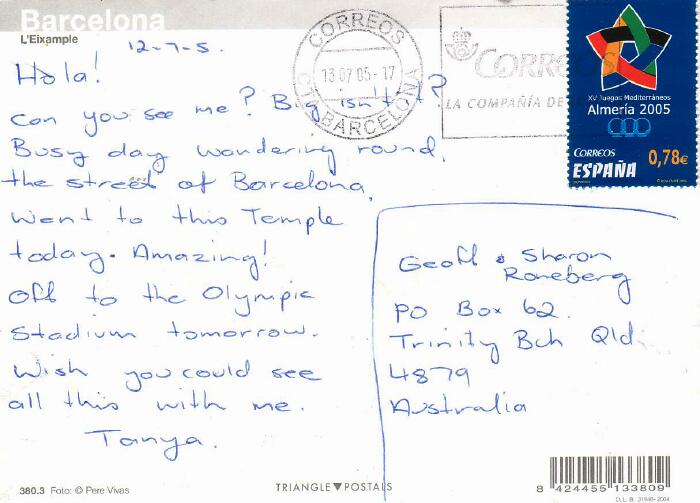 Barcelona
L'Eixample
12-7-5.
Hola!
Can you see me? Big isn't it?
Busy day wandering round,
the street of Barcelona,
Went to this Temple
today. Amazing!
Off to the Olympic
Stadium tomorrow.
Wish you could see
all this with me.
Tanya.
CORREOS
13 07 05-17
BARCELONA
CORREOS
LA COMPAÑÍA DE
XV Juegos Mediterráneos
Almería 2005
CORREOS
ESPAÑA
0,78€
Geoff & Sharon
Roneberg
PO Box 62.
Trinity Bch Qld.
4879
Australia
380.3 Foto: © Pere Vivas
TRIANGLE▼POSTALS
8 424455 133809